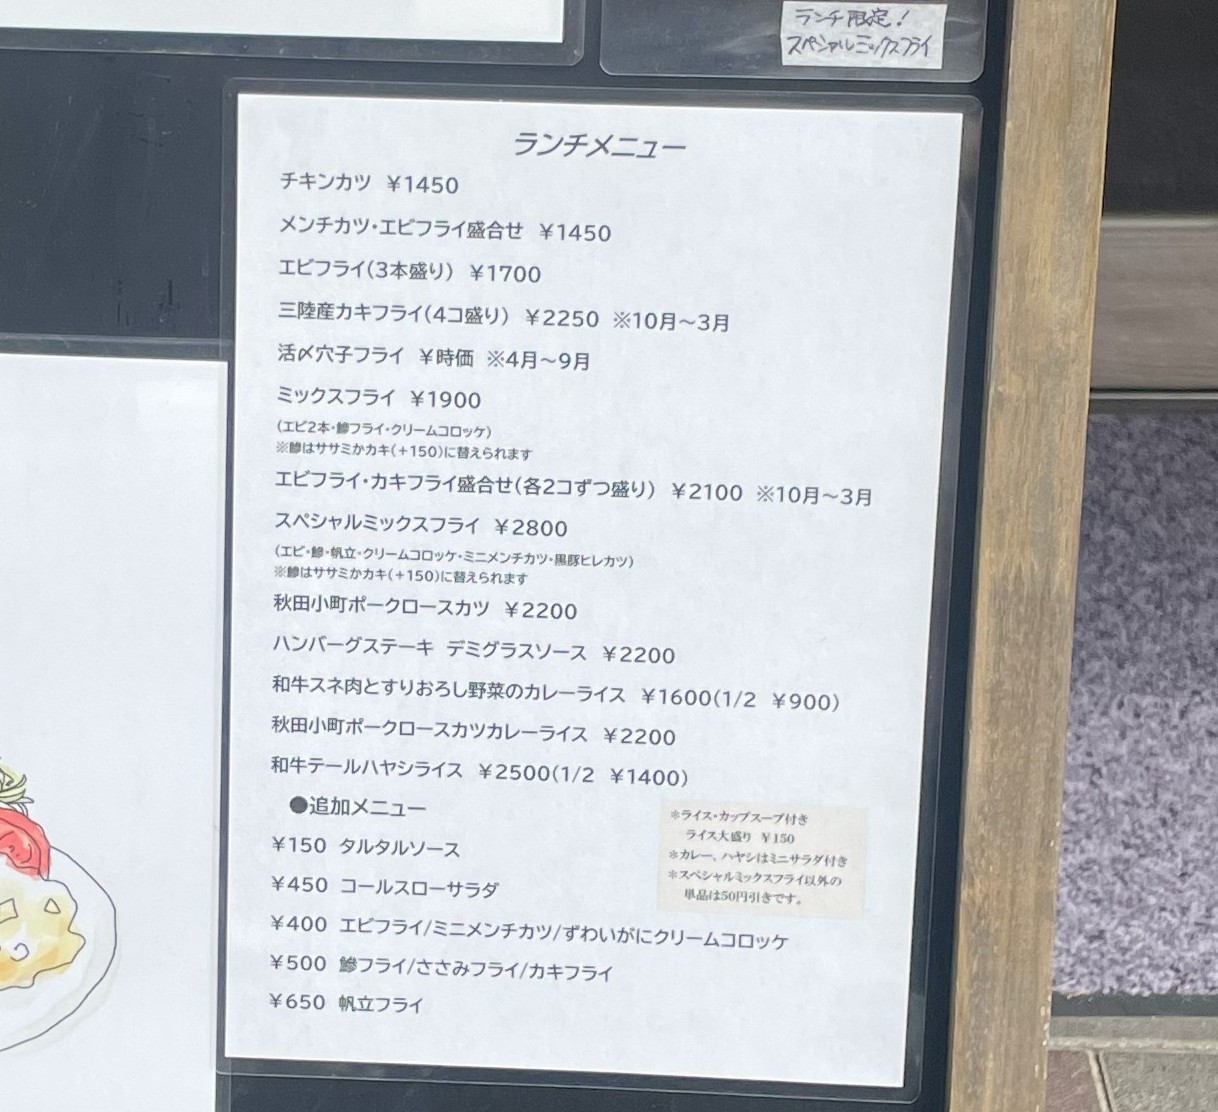 ランチ限定!
スペシャルミックスフライ
ランチメニュー
チキンカツ ¥1450
メンチカツ・エビフライ盛合せ ¥1450
エビフライ(3本盛り) ¥1700
三陸産カキフライ(4コ盛り) ¥2250 ※10月～3月
活〆穴子フライ ¥時価 ※4月～9月
ミックスフライ ¥1900
(エビ2本・鯵フライ・クリームコロッケ)
※鯵はササミかカキ(+150)に替えられます
エビフライ・カキフライ盛合せ(各2コずつ盛り) ¥2100 ※10月～3月
スペシャルミックスフライ ¥2800
(エビ・鯵・帆立・クリームコロッケ・ミニメンチカツ・黒豚ヒレカツ)
※鯵はササミかカキ(+150)に替えられます
秋田小町ポークロースカツ ¥2200
ハンバーグステーキ デミグラスソース ¥2200
和牛スネ肉とすりおろし野菜のカレーライス ¥1600(1/2 ¥900)
秋田小町ポークロースカツカレーライス ¥2200
和牛テールハヤシライス ¥2500(1/2 ¥1400)
●追加メニュー
¥150 タルタルソース
¥450 コールスローサラダ
¥400 エビフライ/ミニメンチカツ/ずわいがにクリームコロッケ
¥500 鯵フライ/ささみフライ/カキフライ
¥650 帆立フライ
＊ライス・カップスープ付き
ライス大盛り ¥150
＊カレー、ハヤシはミニサラダ付き
＊スペシャルミックスフライ以外の
単品は50円引きです。